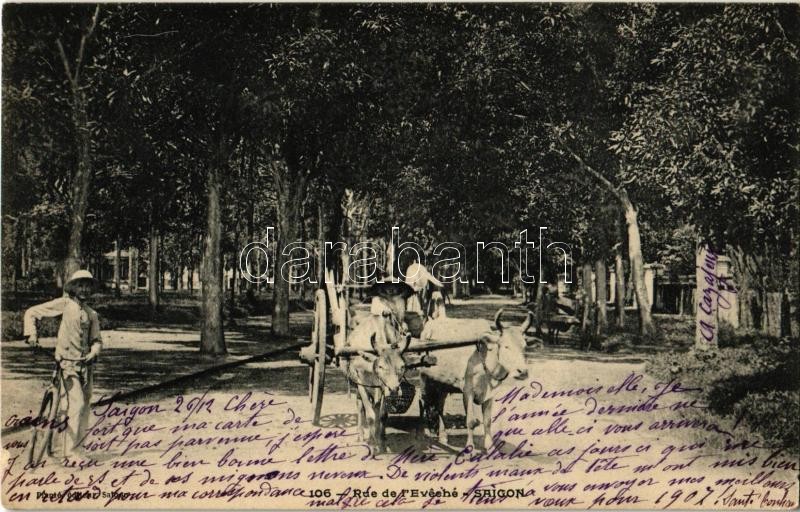 darabanth
A Larafine
Saigon 26/12 Chère Mademoiselle, Je
crains fort que ma carte de l'année dernière ne
vous soit pas parvenue, j'espère que celle-ci vous arrivera!
J'ai reçu une bien bonne lettre de Me Catalie ces jours ci qui me
parle de Es et de ses mignons neveux. De violents maux de tête m'ont mis bien
en retard pour ma correspondance malgré cela je tiens à vous envoyer mes meilleurs
vœux pour 1907 Santé bonheur
106 - Rue de l'Evêché - SAIGON
Planté éditeur, Saigon